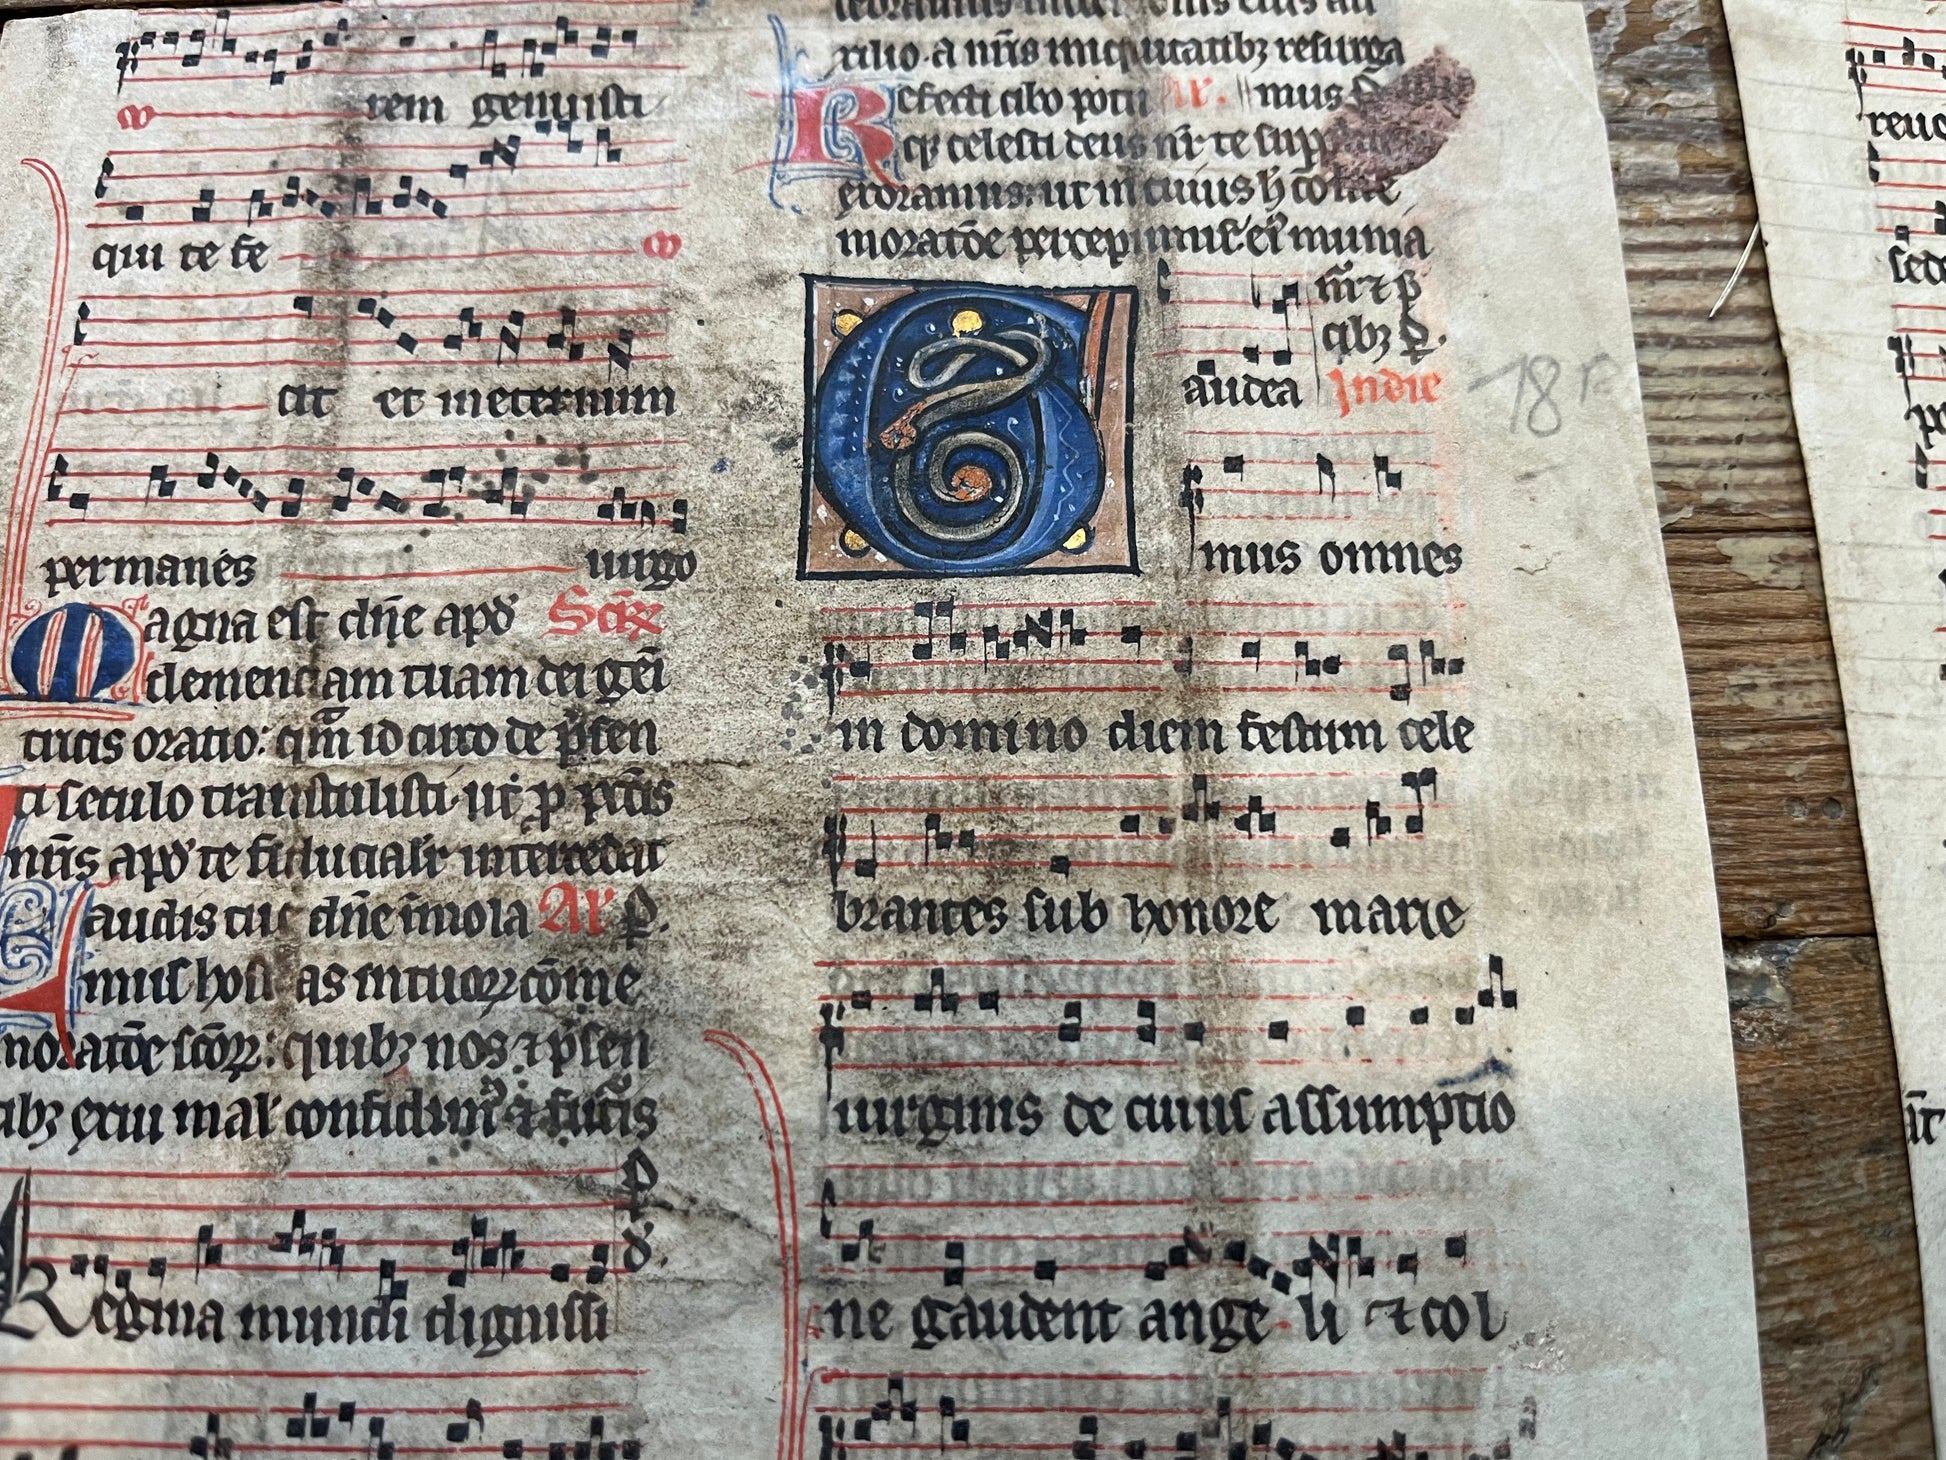 rem genuisti
qui te fe
cit et in eternum
permanēs uirgo
Magna est dn̄e apd' Scr̄
clemenciam tuam dei geni
tricis oratio: qm̄ idcirco de p̄sen
ti seculo transtulisti ut p̄ pctīs
nr̄is apd' te fiducialr̄ intercedat
laudis tue dn̄e īmola Ar p̄.
mus hostias in tuor̄ cōme
moratōe scōr̄: quibꝫ nos ⁊ p̄sen
tibꝫ exui mal' confidimꝰ ⁊ futuris
p̄
d'.
Regina mundi dignissi
xilio. a nr̄is iniquitatibꝫ resurga
Refecti cibo potu Ar. mus p̄
qꝫ celesti deus nr̄ te supp
exoramus: ut in cuius h̄ cōme
moratōe percepimꝰ eiꝰ munia
mr̄ ⁊ p̄
cibꝫ p̄.
Gaudea In die
mus omnes
in domino diem festum cele
brantes sub honore marie
uirginis de cuius assumptio
ne gaudent angeli ⁊ col
18r
reuo
sede